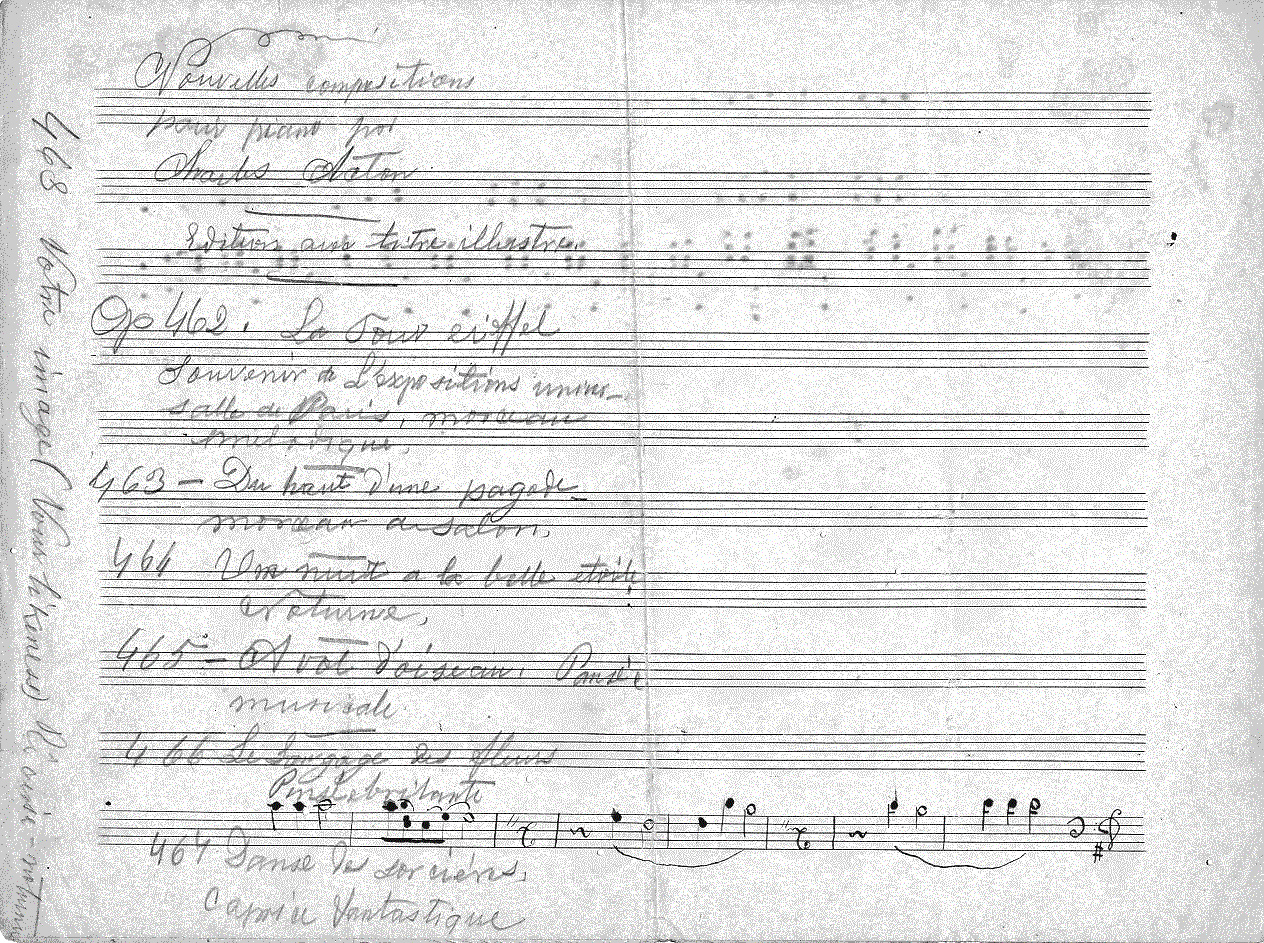 Nouvelles compositions
pour piano par
Charles Acton
Edition avec titre illustre.
Op 462. La Tour eiffel
Souvenir de L'expositions univer_
salle de Paris, morceau
463 – Du haut d'une pagode_
morceau de salon.
464 Une nuit a la belle etoile
Noturne,
465 – A vol d'oiseau. Pensée
musicale
466 Le Langage des fleurs
467 Danse des sorcières,
Caprice fantastique
468 Votre image (Your likeness)